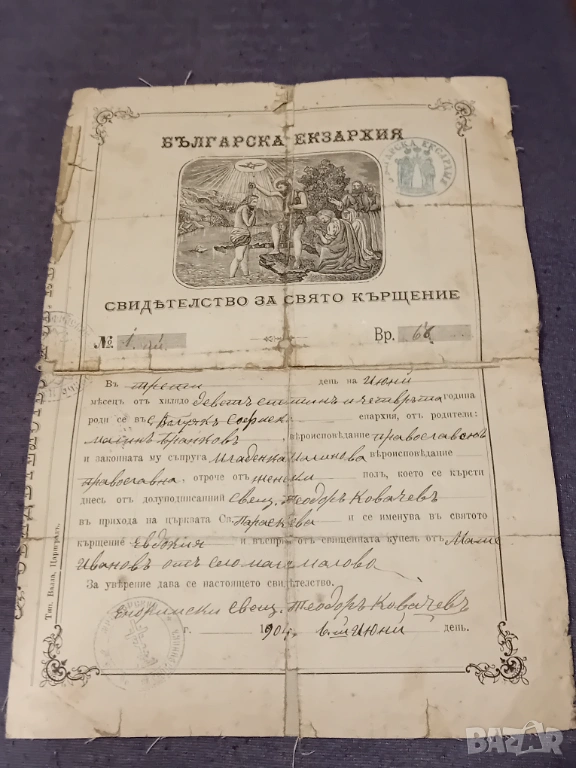 БЪЛГАРСКА ЕКЗАРХИЯ
БЪЛГАРСКА ЕКСАРХИЯ
СВИДѢТЕЛСТВО ЗА СВЯТО КЪРЩЕНИЕ
№ 1 Вр. 66
Въ трети день на Юни
мѣсецъ отъ хилядо деветстотинъ и четвърта година
роди се въ Софийска епархия, отъ родители:
Малинъ Вранковъ, вѣроисповѣдание православенъ
и законната му съпруга Младенка Малинова вѣроисповѣдание
православна, отроче отъ женски полъ, което се кърсти
днесь отъ долуподписаний Свещ. Теодоръ Ковачевъ
въ прихода на църквата Св. Параскева и се именува въ святото
кърщение Евдокия и въспр. отъ священната купель отъ
Ивановъ отъ село
За увѣрение дава се настоящето свидѣтелство.
Енорийски свещ. Теодоръ Ковачевъ
г. 1904 Юни день.
Тип. Валла, Цариградъ.
BAZAR